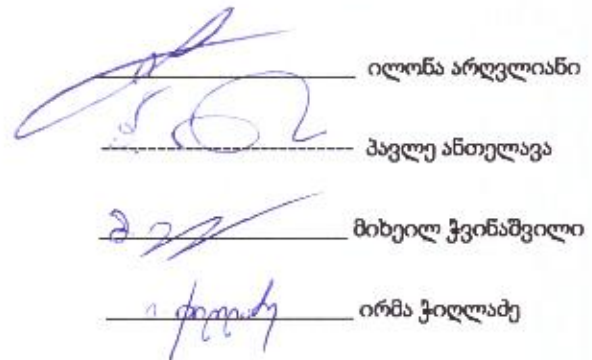 ილონა არღვლიანი
პავლე ანთელავა
მიხეილ ჭვინაშვილი
ირმა ჭიღლაძე